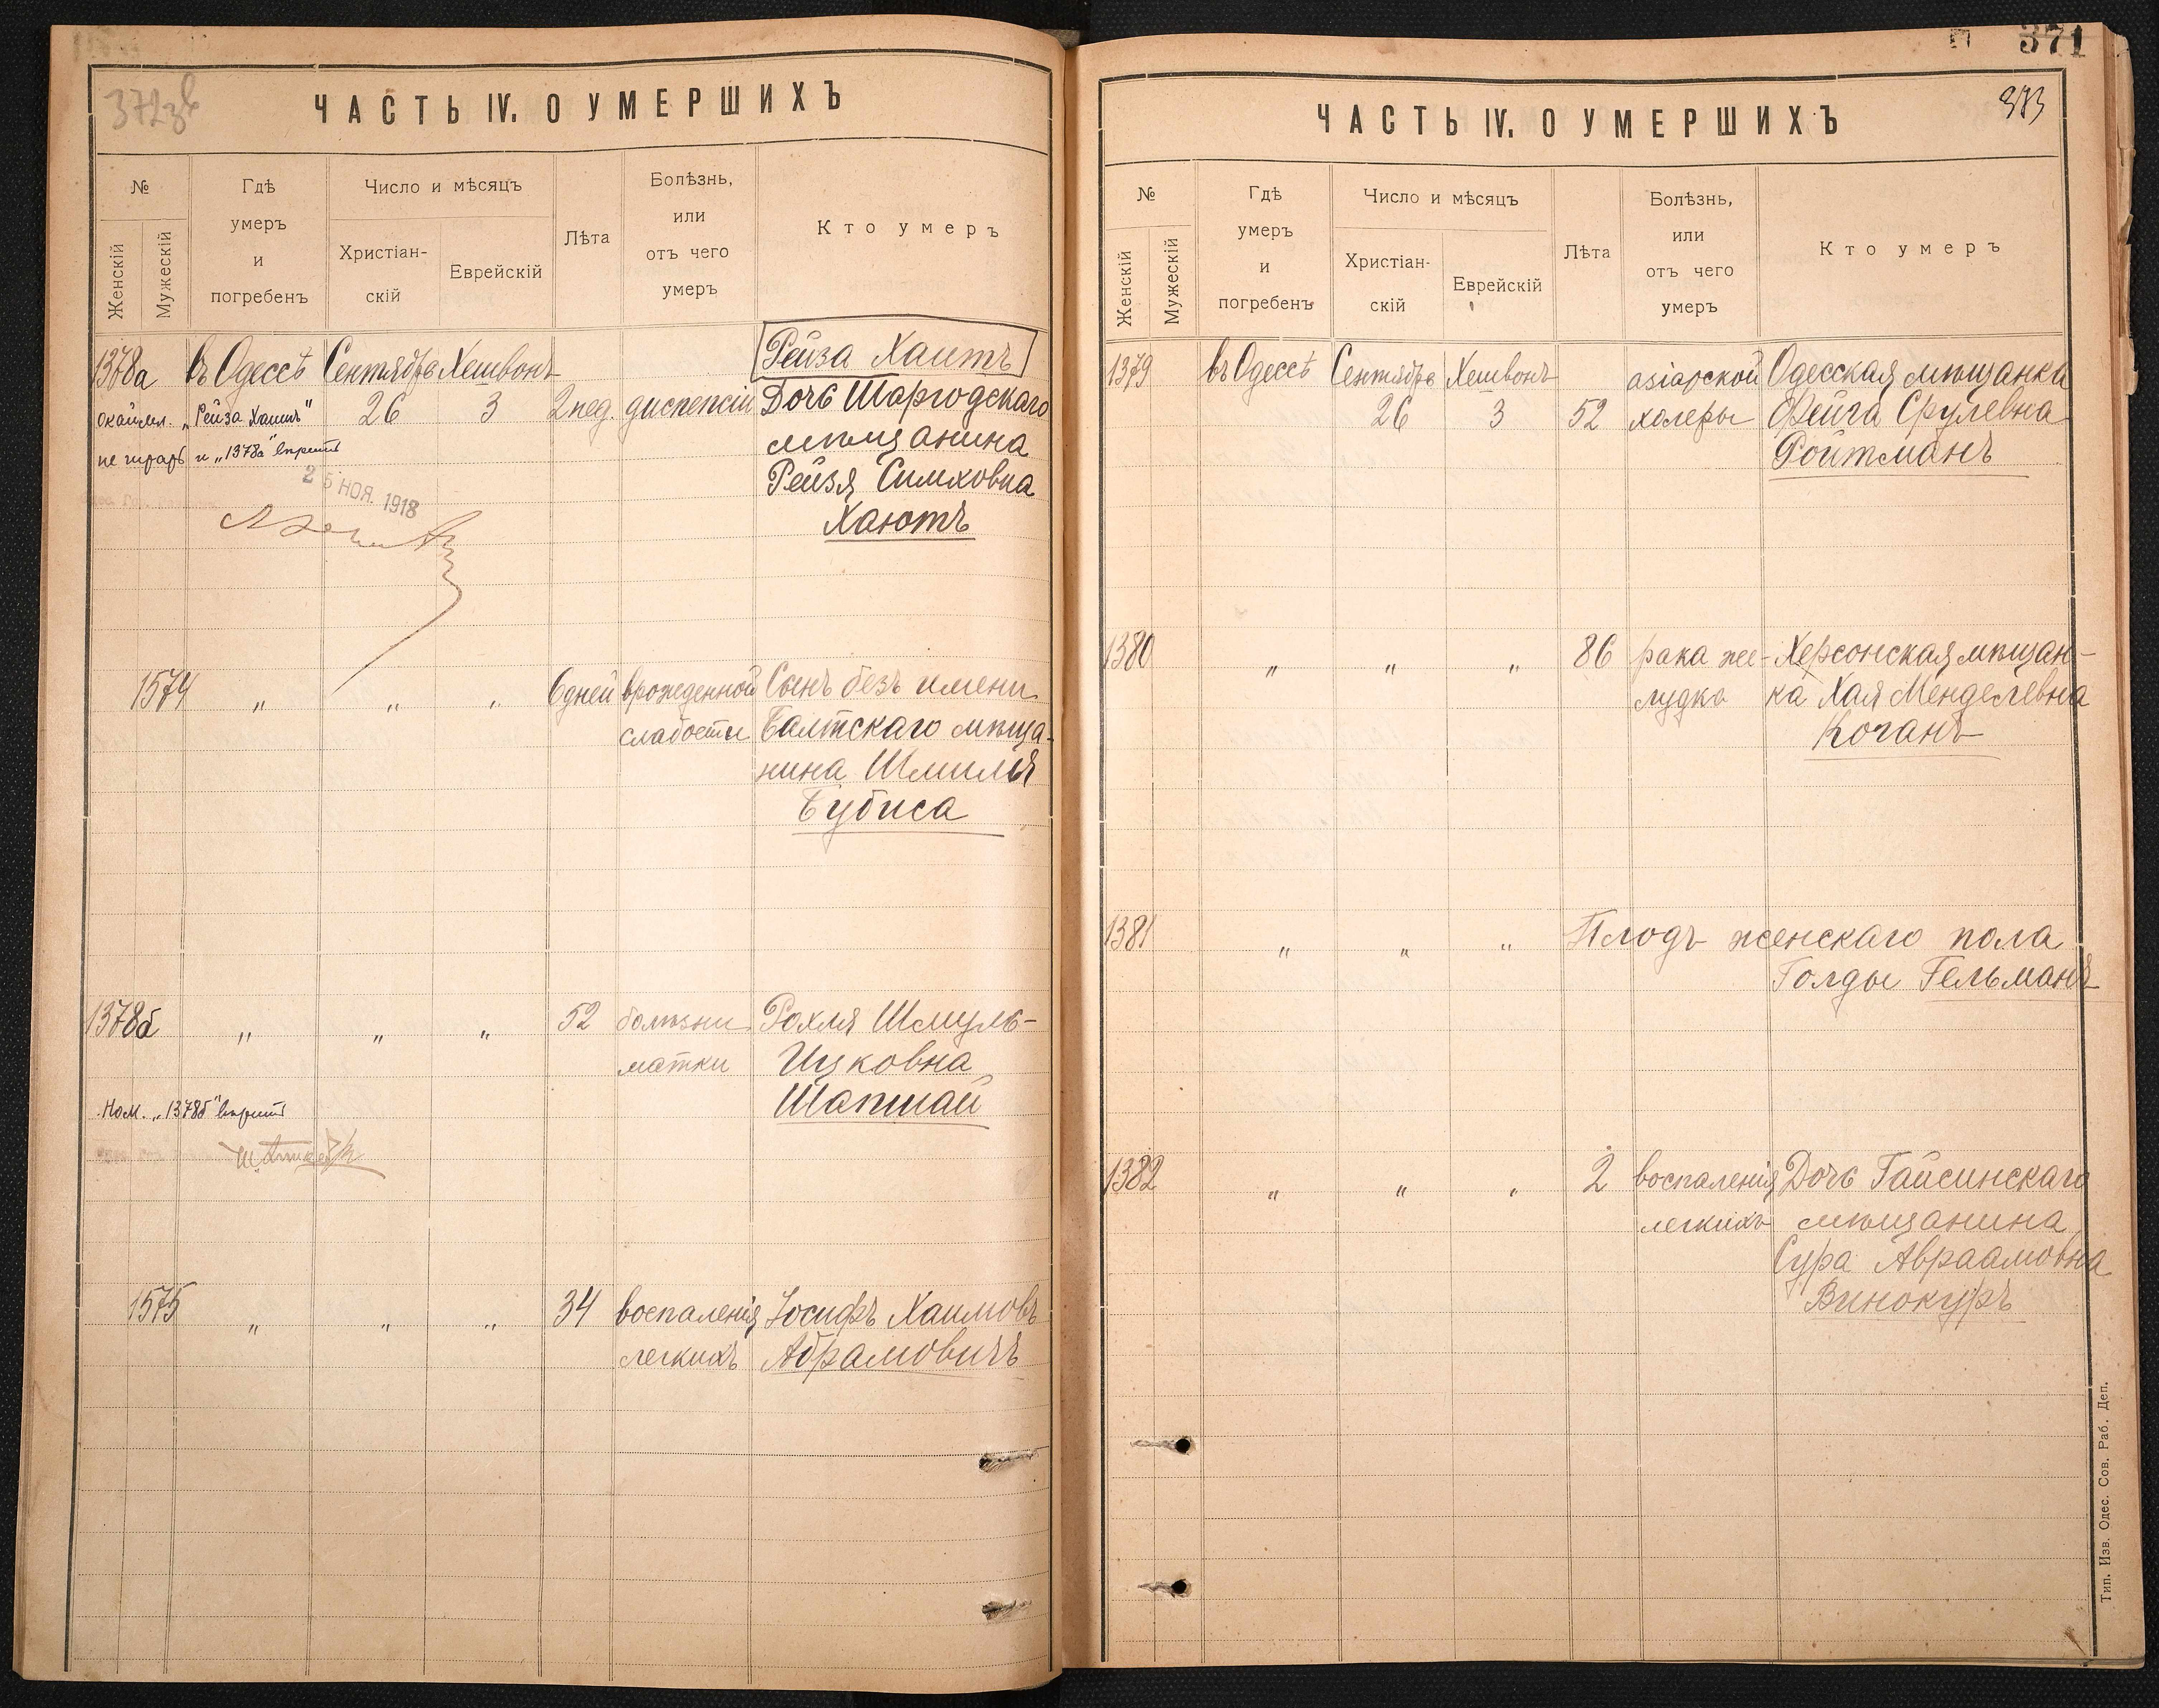 ЧАСТЬ IV. О УМЕРШИХЪ
№
Женскій
Мужескій
Гдѣ
умеръ
и
погребенъ
Число и мѣсяцъ
Христіан-
скій
Еврейскій
Лѣта
Болѣзнь,
или
отъ чего
умеръ
Кто умеръ
1378а въ Одессѣ Сентября Хешвонъ Рейза Хаитъ
26 3 2 нед. диспепсіи Дочь Шаргодскаго
мѣщанина
Рейзя Симховна
Хаютъ
окаймл. „Рейза Хаитъ"
не читать и „1378а"
25 НОЯ. 1918
1574 „ „ „ 6 дней врожденной Сынъ безъ имени
слабости Балтскаго мѣща-
нина Шмиля
Бубиса
1378б „ „ „ 52 болѣзни Рохля Шмуль-
матки Ицковна
Шапшай
„1378б"
1575 „ „ „ 34 воспаленія Іосифъ Хаимовъ
легкихъ Абрамовичъ
371
373
ЧАСТЬ IV. О УМЕРШИХЪ
№
Женскій
Мужескій
Гдѣ
умеръ
и
погребенъ
Число и мѣсяцъ
Христіан-
скій
Еврейскій
Лѣта
Болѣзнь,
или
отъ чего
умеръ
Кто умеръ
1379 въ Одессѣ Сентября Хешвонъ Одесская мѣщанка
26 3 52 холеры Фейга Срулевна
Ройтманъ
1380 „ „ „ 86 рака же- Херсонская мѣщан-
лудка ка Хая Менделевна
Коганъ
1381 „ „ „ Плодъ женскаго пола
Голды Гельманъ
1382 „ „ „ 2 воспаленія Дочь Гайсинскаго
легкихъ мѣщанина
Сура Авраамовна
Винокуръ
Тип. Изв. Одес. Сов. Раб. Деп.